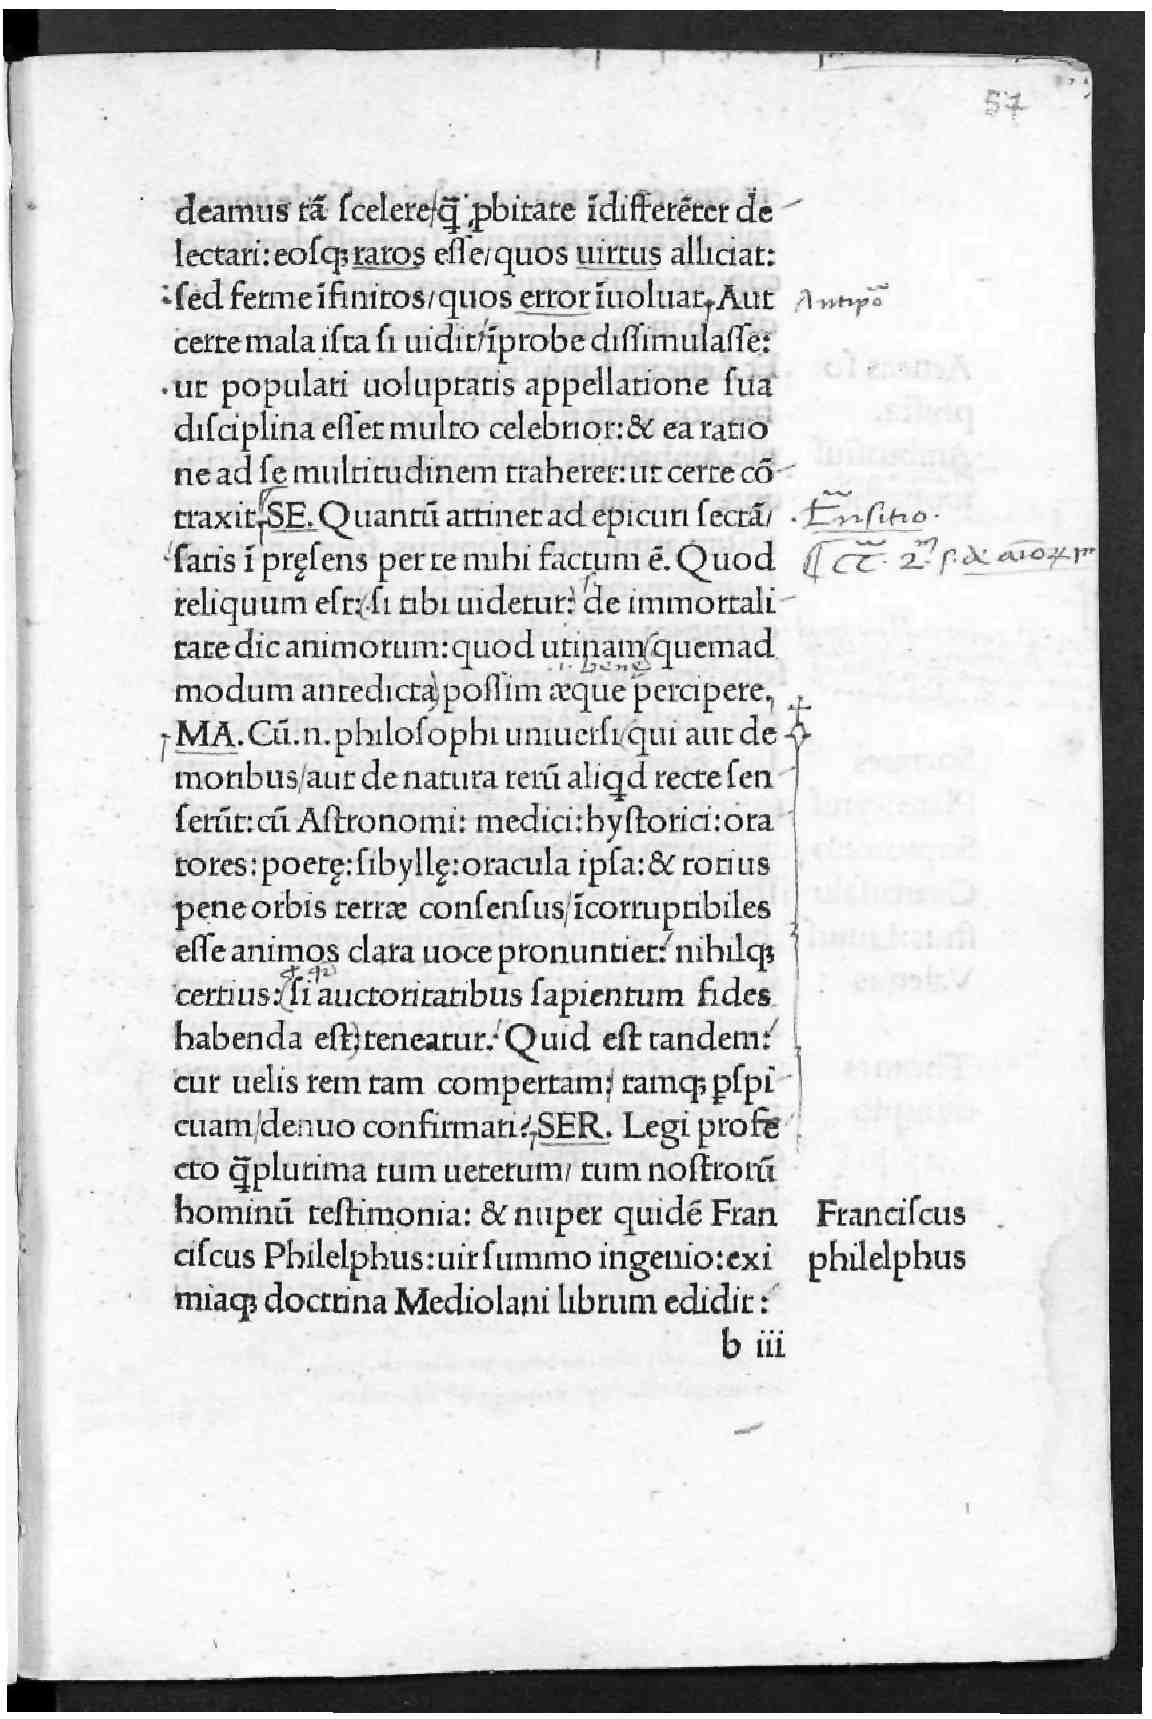 57
deamus tā ſcelere/q̄ ꝓbitate īdifferēter de
lectari: eoſqꝫ raros eſſe/ quos uirtus alliciat:
ſed ferme īfinitos/ quos error īuoluat. Aut
Antipō
certe mala iſta ſi uidit/ īprobe diſſimulaſſe:
ut populari uoluptatis appellatione ſua
diſciplina eſſet multo celebrior: & ea ratio
ne ad ſe multitudinem traheret: ut certe cō
traxit. SE. Quantū attinet ad epicuri ſectā/
ſatis ī pręſens per te mihi factum ē. Quod
reliquum eſt: ſi tibi uidetur: de immortali
tate dic animorum: quod utinam quemad
modum antedicta poſſim æque percipere.
MA. Cū.n. philoſophi uniuerſi/ qui aut de
moribus/ aut de natura rerū aliqd recte ſen
ſerūt: cū Aſtronomi: medici: hyſtorici: ora
tores: poetę: ſibyllę: oracula ipſa: & totius
pene orbis terræ conſenſus/ īcorruptibiles
eſſe animos clara uoce pronuntiet: nihilqꝫ
certius: ſi auctoritatibus ſapientum fides
habenda eſt) teneatur: Quid eſt tandem:
cur uelis rem tam compertam: tamqꝫ ꝑſpi
cuam/ denuo confirmari? SER. Legi profe
cto q̄plurima tum ueterum/ tum noſtrorū
hominū teſtimonia: & nuper quidē Fran
Franciſcus
ciſcus Philelphus: uir ſummo ingenio: exi
philelphus
miaqꝫ doctrina Mediolani librum edidit:
b iii